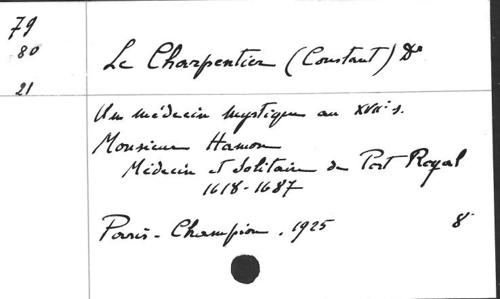 79
80
21
Le Charpentier (Constant) Dr
Un médecin mystique au XVIIe s.
Monsieur Hamon
Médecin et Solitaire de Port Royal
1618-1687
Paris - Champion, 1925 8°